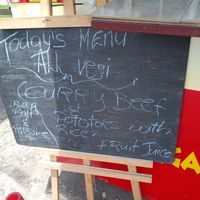 Today's Menu
Akk Vegi
Curry Beef
Potatoes with
Rice
+ Fruit Juice
GA